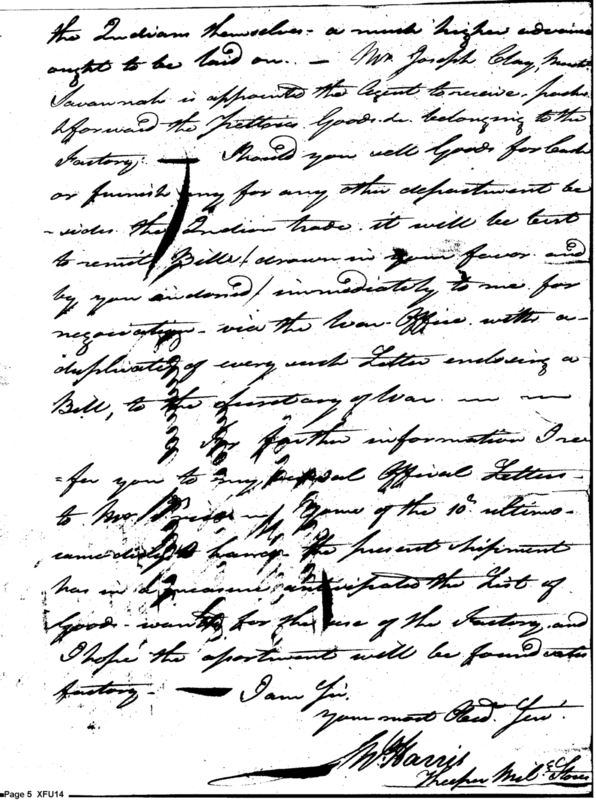 the Indians themselves - a much higher advance
ought to be laid on. - Mr. Joseph Clay, Mercht.
Savannah is appointed the Agent to receive, pack
& forward the Peltries Goods &c. belonging to the
Factory; - Should you sell Goods for Cash
or furnish any for any other department be
-sides the Indian trade it will be best
to remit Bills / drawn in your favor and
by you endorsed / immediately to me for
negociation - via the War-Office with a-
duplicate of every such Letter enclosing a
Bill, to the Secretary of War.
For further information I re
=fer you to my several Official Letters-
to Mr. Price. Yours of the 10th ultimo-
came duly to hand - the present shipment
has in a measure anticipated the List of
Goods - wanted for the use of the Factory, and
I hope the assortment will be found satis
factory - I am Sir.
Your most Obed. Serv.
Wm. Harris
Keeper Mil. &c. Stores
Page 5 XFU14